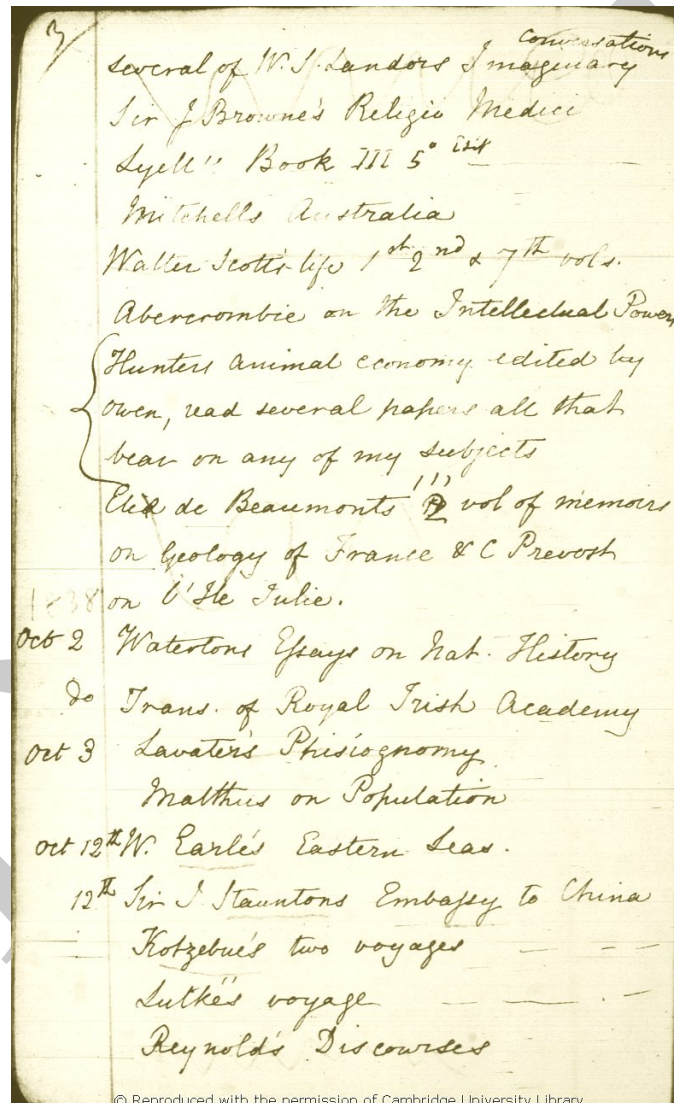 3
conversations
several of W. S. Landors Imaginary
Sir J Browne's Religio Medici
Lyell" Book III 5° Edit
Mitchells Australia
Walter Scotts life 1st 2nd & 7th vols.
Abercrombie on the Intellectual Powers
Hunters animal economy edited by
Owen, read several papers all that
bear on any of my subjects
Elie de Beaumonts 2 vol of memoirs
on Geology of France & C Prevost
1838 on l'Ile Julie.
Oct 2 Watertons Essays on Nat. History
Do Trans. of Royal Irish Academy
Oct 3 Lavater's Phisiognomy
Malthus on Population
Oct 12th W. Earle's Eastern Seas.
12th Sir J Stauntons Embassy to China
Kotzebue's two voyages
Lutkë's voyage
Reynold's Discourses
© Reproduced with the permission of Cambridge University Library